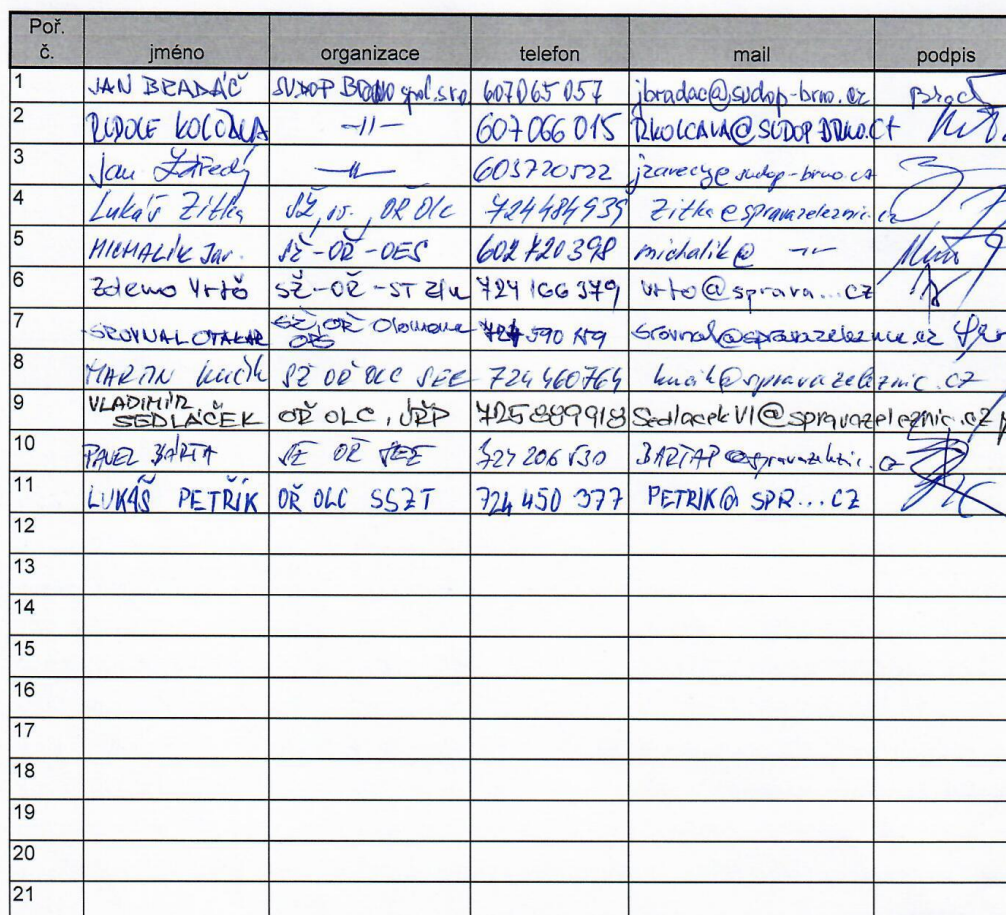 Poř. č. jméno organizace telefon mail podpis
1 JAN BRADÁČ SUDOP BRNO spol. s r.o. 607065057 jbradac@sudop-brno.cz
2 RUDOLF KOLČAVA -11- 607066015 RKOLCAVA@SUDOP BRNO.CZ
3 Jan -11- 603720522
4 Lukáš Zitka SŽ, s.o., OŘ Olc 724484939 Zitka@spravazeleznic.cz
5 MICHALÍK Jar. SŽ-OŘ-OES 602720398 michalik@ -11-
6 Zdeno Vrtó SŽ-OŘ-ST Zln 724 166 379 vrto@sprava...CZ
7 SROVNAL OTAKAR SŽ, OŘ Olomouc srovnal@spravazeleznic.cz
8 MARTIN Kucík SŽ OŘ OLC SEE 724 460764 kucik@spravazeleznic.cz
9 VLADIMÍR SEDLÁČEK OŘ OLC, ÚŘP 725889918 SedlacekVl@spravazeleznic.cz
10 PAVEL BÁRTA SŽ OŘ SEE BARTAP@spravazeleznic.cz
11 LUKÁŠ PETŘÍK OŘ OLC SSZT 724 450 377 PETRIK@ SPR...CZ
12
13
14
15
16
17
18
19
20
21